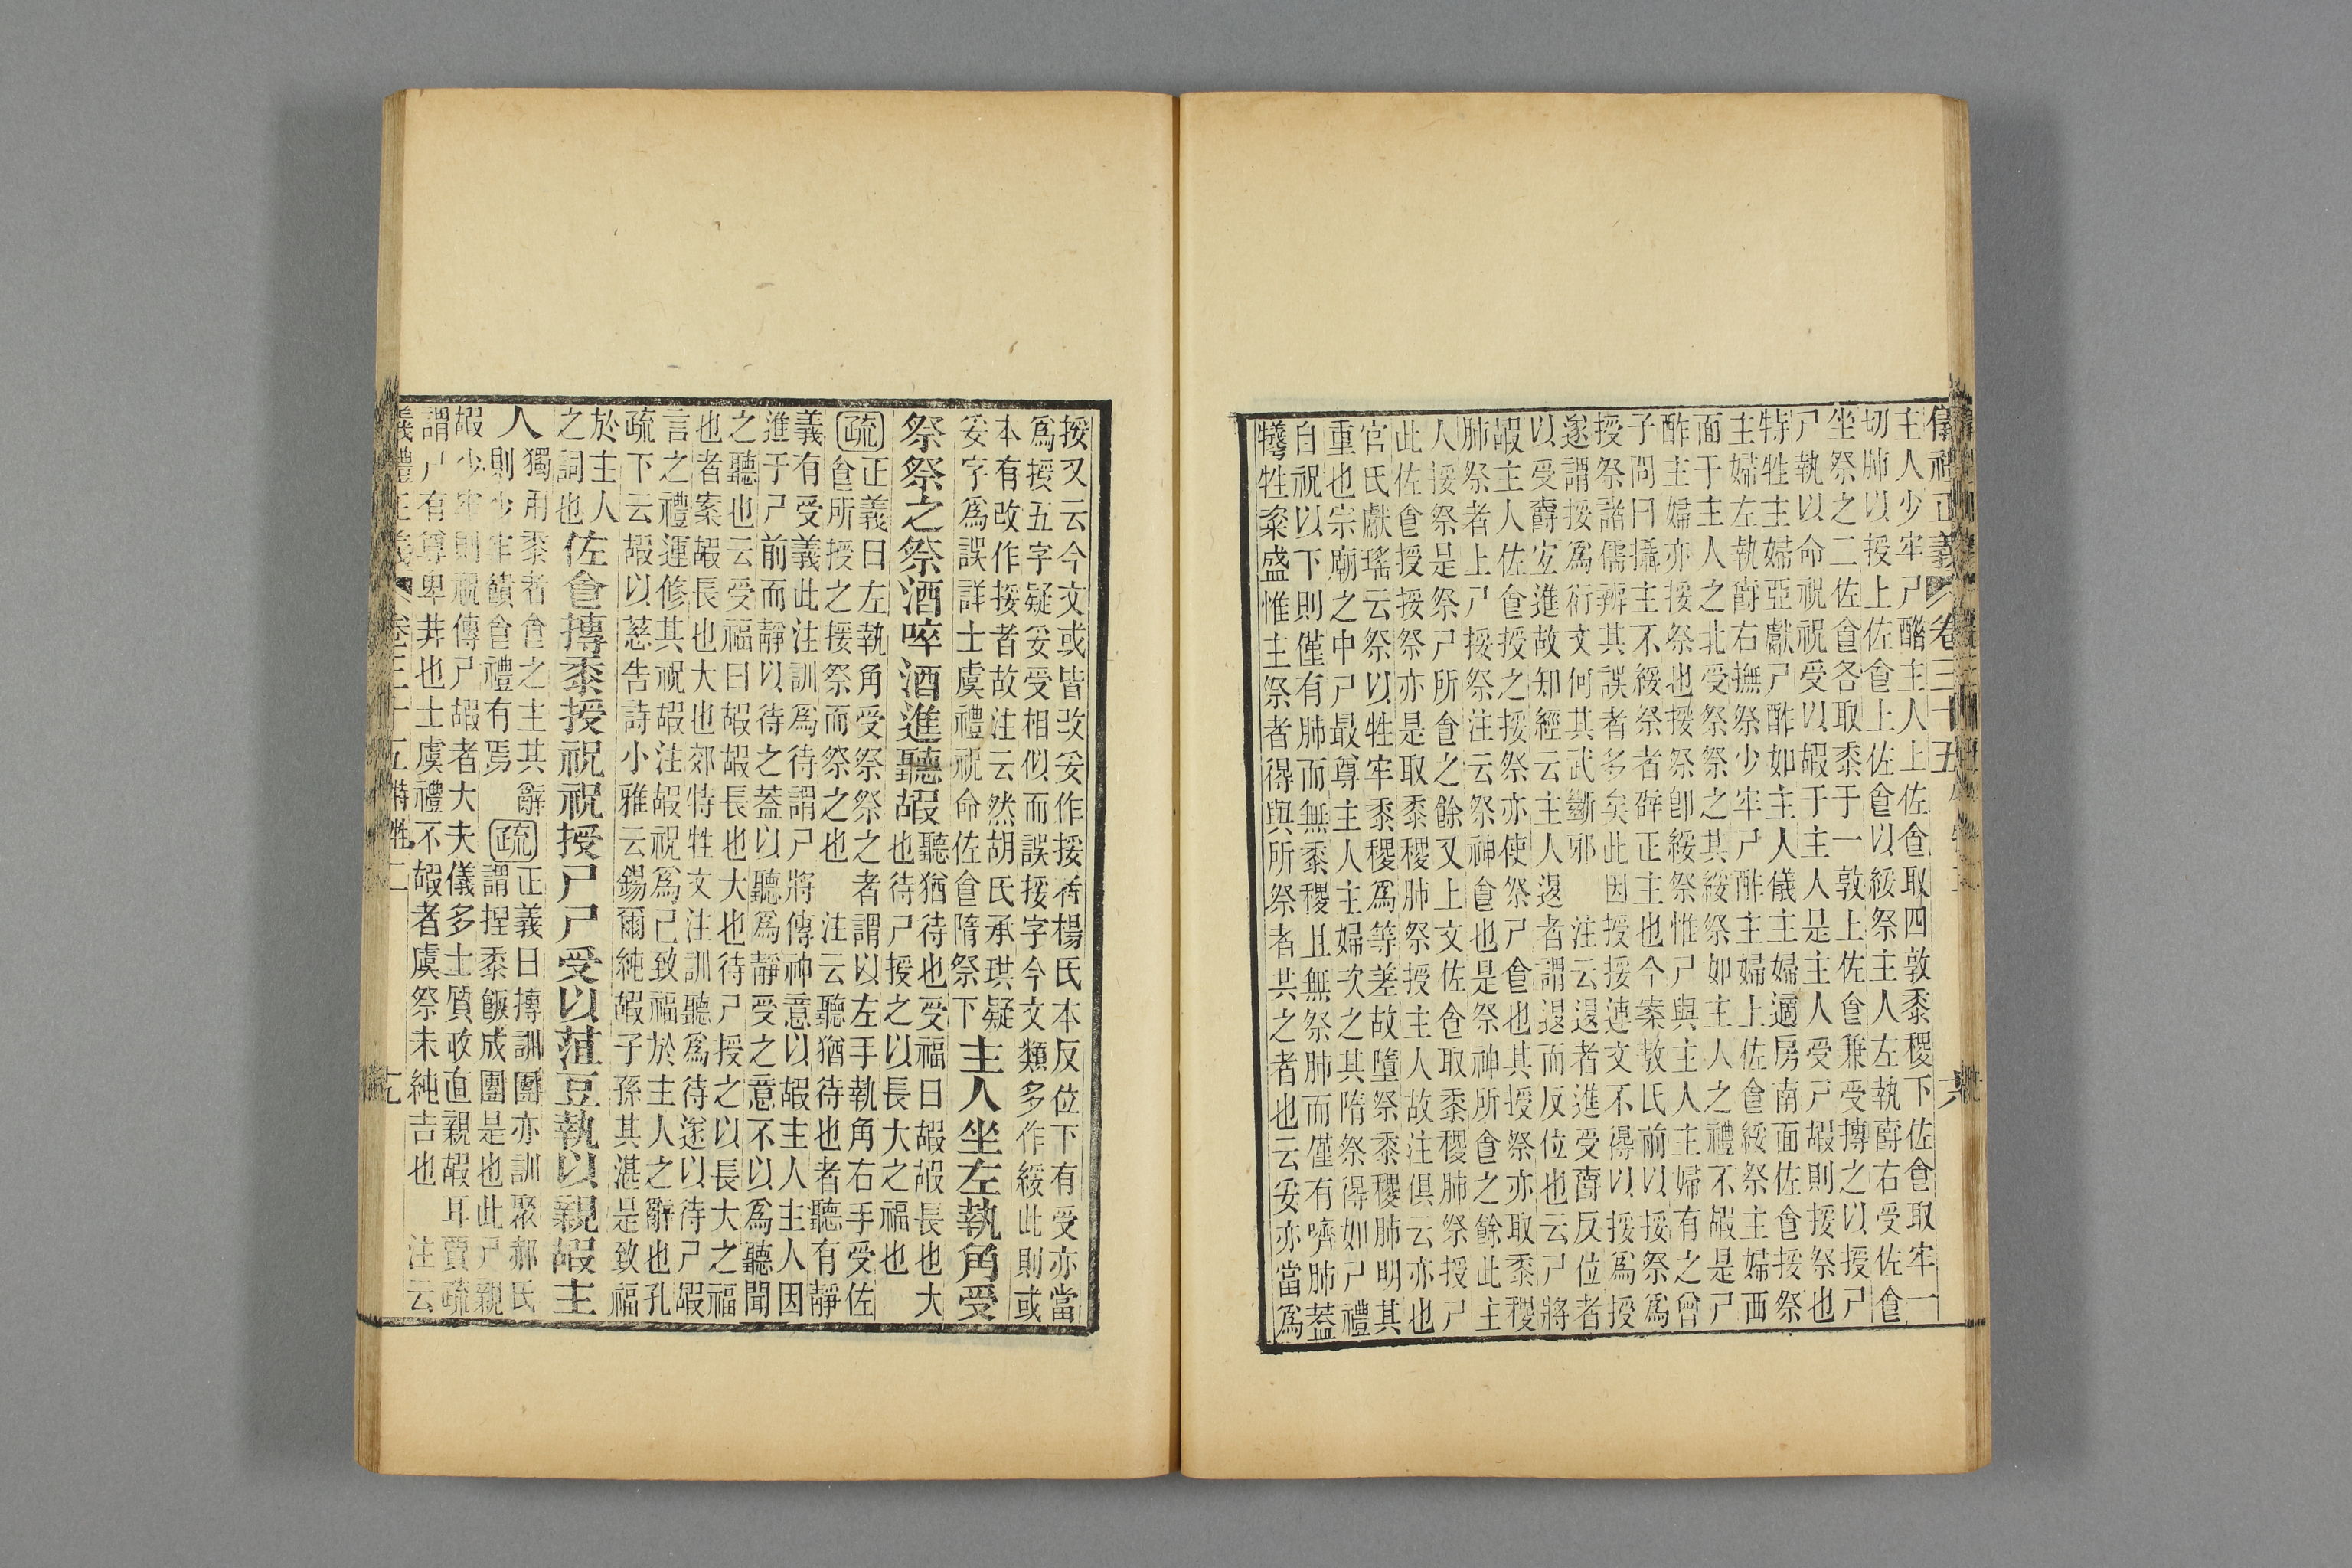 儀禮正義 卷三十五
主人少牢尸酢主人上佐食取四敦黍稷下佐食取牢一
切肺以授上佐食上佐食以綏祭主人左執爵右受佐食
坐祭之二佐食各取黍于一敦上佐食兼受摶之以授尸
尸執以命祝祝受以嘏于主人是主人受尸嘏則授祭也
特牲主婦亞獻尸酢如主人儀主婦適房南面佐食挼祭
主婦左執爵右撫祭少牢尸酢主婦上佐食綏祭主婦西
面于主人之北受祭祭之其綏祭如主人之禮不嘏是尸
酢主婦亦挼祭也挼祭卽綏祭惟尸與主人主婦有之曾
子問曰攝主不綏祭者辟正主也今案敖氏前以挼祭爲
授祭諸儒辨其誤者多矣此因授挼連文不得以挼爲授
遂謂挼爲衍文何其武斷邪 注云退者進受爵反位者
以受爵宜進故知經云主人退者謂退而反位也云尸將
嘏主人佐食授之挼祭亦使祭尸食也其授祭亦取黍稷
肺祭者上尸挼祭注云祭神食也是祭神所食之餘此主
人挼祭是祭尸所食之餘又上文佐食取黍稷肺祭授尸
此佐食授挼祭亦是取黍稷肺祭授主人故注俱云亦也
官氏獻瑤云祭以牲牢黍稷爲等差故墮祭黍稷肺明其
重也宗廟之中尸最尊主人主婦次之其隋祭得如尸禮
自祝以下則僅有肺而無黍稷且無祭肺而僅有嚌肺蓋
犧牲粢盛惟主祭者得與所祭者共之者也云妥亦當爲
挼又云今文或皆改妥作挼者楊氏本反位下有受亦當
爲授五字疑妥受相似而誤挼字今文類多作綏此則或
本有改作挼者故注云然胡氏承珙疑
妥字爲誤詳士虞禮祝命佐食隋祭下主人坐左執角受
祭祭之祭酒啐酒進聽嘏聽猶待也受福曰嘏嘏長也大
也待尸授之以長大之福也
疏正義曰左執角受祭祭之者謂以左手執角右手受佐
食所授之挼祭而祭之也 注云聽猶待也者聽有靜
義有受義此注訓爲待謂尸將傳神意以嘏主人主人因
進于尸前而靜以待之蓋以聽爲靜受之意不以爲聽聞
之聽也云受福曰嘏嘏長也大也待尸授之以長大之福
也者案嘏長也大也郊特牲文注訓聽爲待遂以待尸嘏
言之禮運修其祝嘏注嘏祝爲己致福於主人之辭也孔
疏下云嘏以慈告詩小雅云錫爾純嘏子孫其湛是致福
於主人
之詞也佐食摶黍授祝祝授尸尸受以菹豆執以親嘏主
人獨用黍者食之主其辭
則少牢饋食禮有焉疏正義曰摶訓團亦訓聚郝氏
謂捏黍飯成團是也此尸親
嘏少牢則祝傳尸嘏者大夫儀多士質故直親嘏耳賈疏
謂尸有尊卑井也士虞禮不嘏者虞祭未純吉也 注云
儀禮正義 卷三十五 特牲一